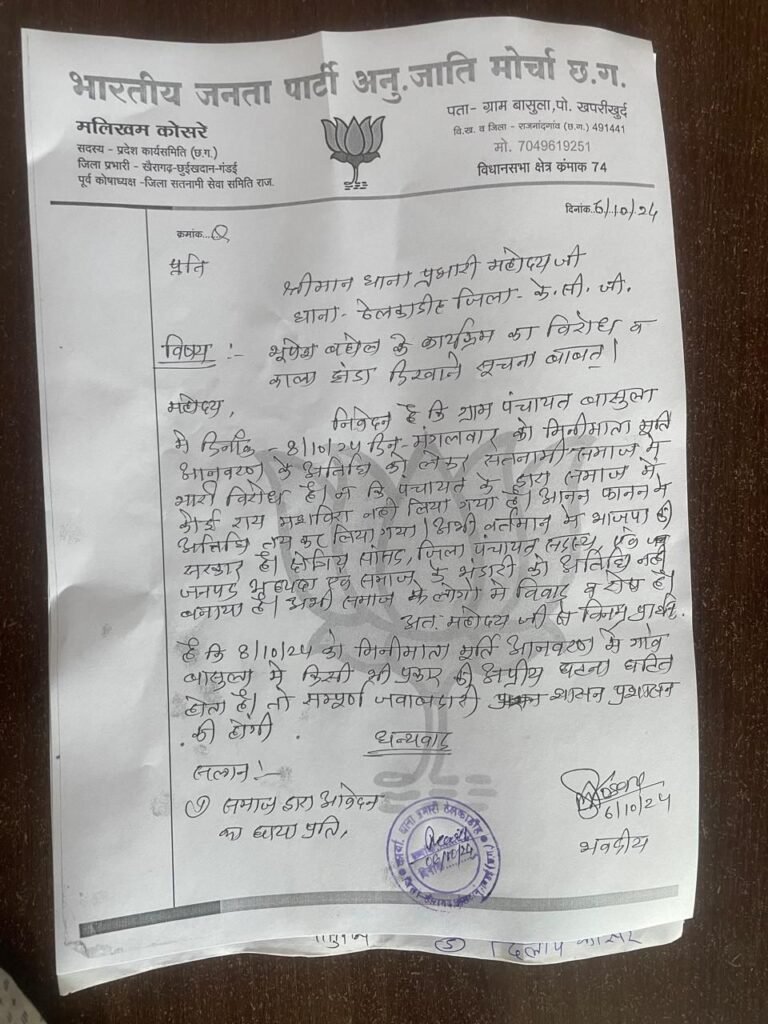 भारतीय जनता पार्टी अनु.जाति मोर्चा छ.ग.
मलिखम कोसरे
सदस्य - प्रदेश कार्यसमिति (छ.ग.)
जिला प्रभारी - खैरागढ़-छुईखदान-गंडई
पूर्व कोषाध्यक्ष -जिला सतनामी सेवा समिति राज.
पता- ग्राम बासुला,पो. खपरीखुर्द
वि.ख. व जिला - राजनांदगांव (छ.ग.) 491441
मो. 7049619251
विधानसभा क्षेत्र कंमाक 74
दिनांक.6/10/24
क्रमांक...
प्रति
श्रीमान थाना प्रभारी महोदय जी
थाना- ठेलकाडीह जिला- के. सी. जी.
विषय :- भूपेश बघेल के कार्यक्रम का विरोध व
काला झंडा दिखाने सूचना बाबत्।
महोदय,
निवेदन है कि ग्राम पंचायत बासुला
मे दिनाँक - 8/10/24 दिन- मंगलवार को मिनीमाता मूर्ति
आनवरण के अतिथि को लेकर सतनामी समाज मे
भारी विरोध है। न कि पंचायत के द्वारा समाज मे
कोई राय मशविरा नही लिया गया है। आनन फानन मे
अतिथि तय कर लिया गया। अभी वर्तमान मे भाजपा की
सरकार है। क्षेत्रिय सांसद, जिला पंचायत सदस्य, एवं
जनपद अध्यक्ष एवं समाज के भंडारी को अतिथि नही
बनाया है। अभी समाज के लोगो मे विवाद व रोष है।
अतः महोदय जी से विनम्र प्रार्थना
है कि 8/10/24 को मिनीमाता मूर्ति आनवरण मे गांव
बासुला मे किसी भी प्रकार की अप्रीय घटना घटित
होता है। तो सम्पूर्ण जवाबदारी शासन प्रशासन
की होगी
धन्यवाद
सलग्न :-
① समाज द्वारा आवेदन
का छाया प्रति,
6/10/24
भवदीय
⑤ दिलीप कोसरे